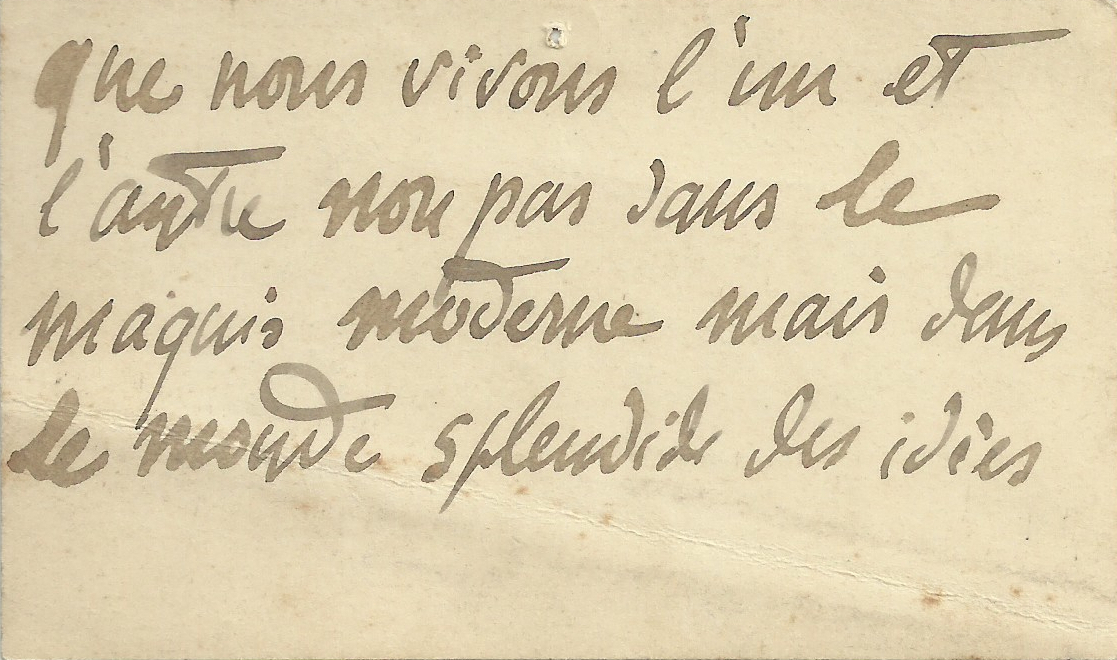 que nous vivons l'un et
l'autre non pas dans le
maquis moderne mais dans
le monde splendide des idées